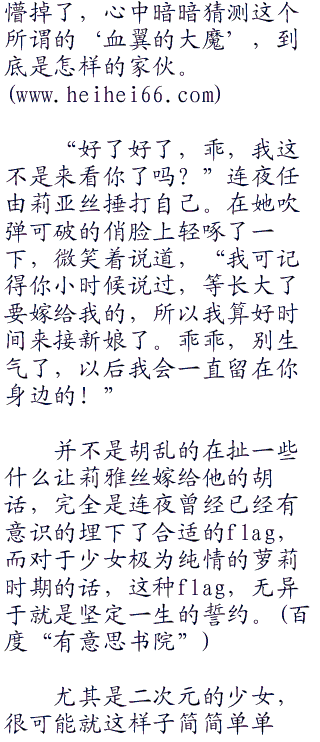 懵掉了，心中暗暗猜测这个
所谓的‘血翼的大魔’，到
底是怎样的家伙。
(www.heihei66.com)
“好了好了，乖，我这
不是来看你了吗？”连夜任
由莉亚丝捶打自己。在她吹
弹可破的俏脸上轻啄了一
下，微笑着说道，“我可记
得你小时候说过，等长大了
要嫁给我的，所以我算好时
间来接新娘了。乖乖，别生
气了，以后我会一直留在你
身边的！”
并不是胡乱的在扯一些
什么让莉雅丝嫁给他的胡
话，完全是连夜曾经已经有
意识的埋下了合适的flag，
而对于少女极为纯情的萝莉
时期的话，这种flag，无异
于就是坚定一生的誓约。(百
度“有意思书院”)
尤其是二次元的少女，
很可能就这样子简简单单